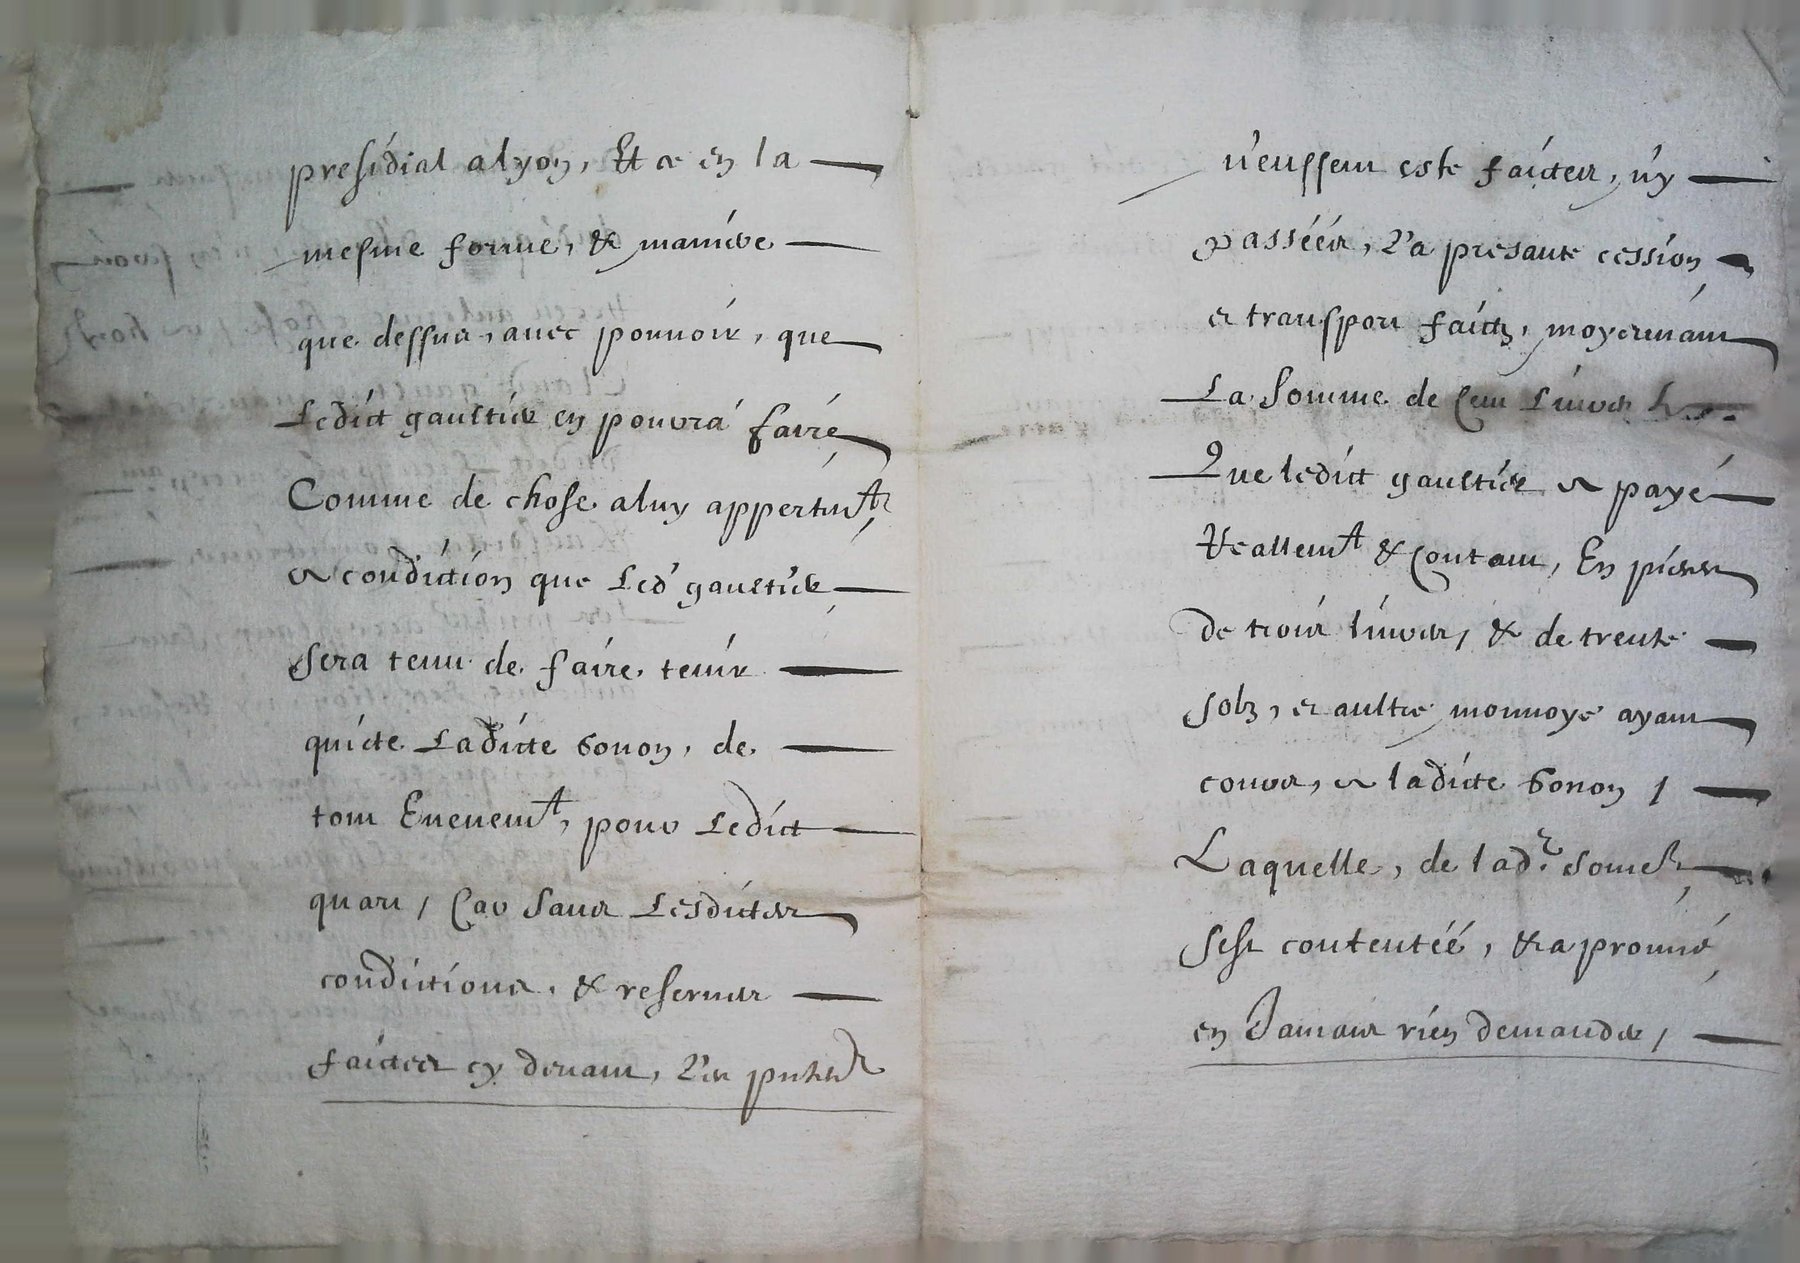 presidial a lyon, Et ce en la
mesme forme, & maniere
que dessus, avec pouvoir, que
Ledict gaultier en pourra faire
Comme de chose a luy appertent
a condiction que Led gaultier
sera tenu de faire tenir
quicte Ladicte bonon, de
tout Evenemt, pour Ledict
quart, Car sans Lesdictes
condictions, & reserves
faictes cy devant, Les
n'eussent este faictes, n'y
passéés, La presante cession
et transport faictz, moyennant
La somme de Cent Livres
Que ledict gaultier a payé
Reallemt & Contant, En pieces
de trois livres, & de trente
solz, et aultre monnoye ayant
cours, a ladicte bonon,
Laquelle, de lad. somme
s'est contentéé, & a promis
en Jamais rien demander,